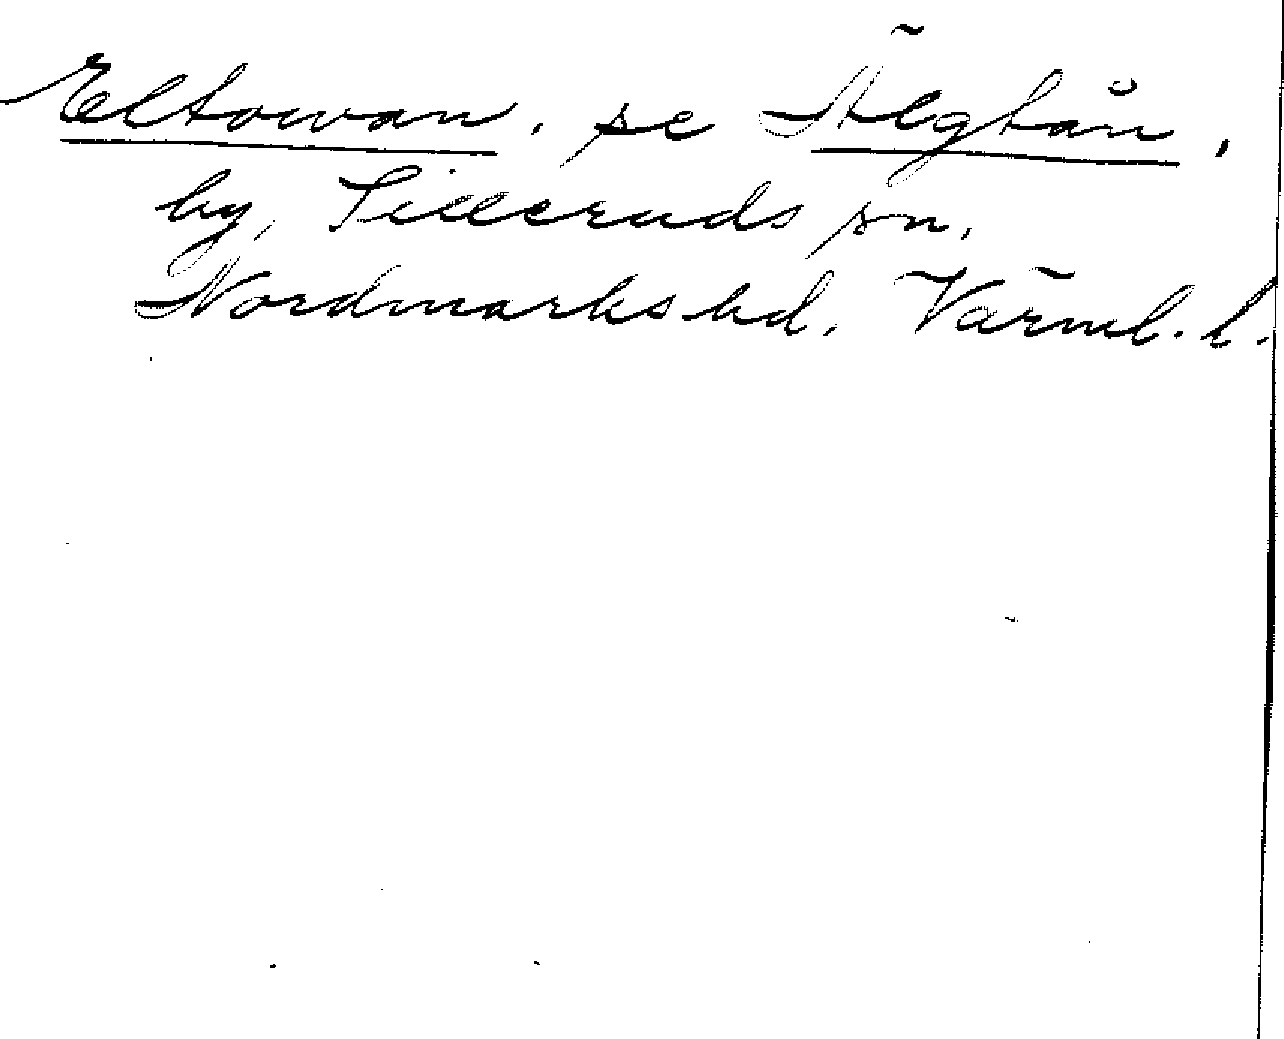 Eltowan, se Älgtån,
by, Silleruds sn,
Nordmarks hd, Värml. l.